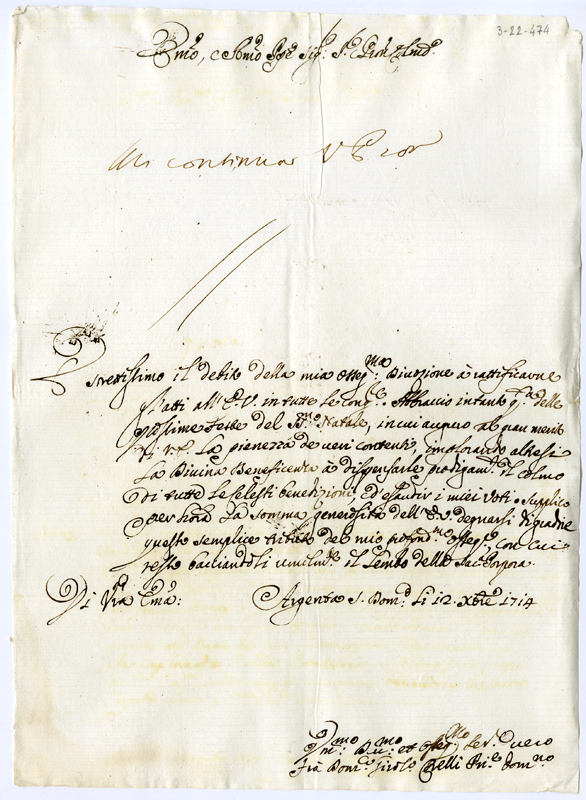 3-22-474
Emo, e
continuar V E
Strettissimo il debito della mia osseq:ma Divozione à rattificarne
gl'atti all'E.V. in tutte le Abbraccio intanto delle
prossime Feste del SSmo Natale, in cui auguro al pari merito
di V.E. La pienezza de veri contenti, implorando altresì
La Divina Beneficenza à dispensarle prodigam:te il colmo
di tutte le celesti benedizioni, ed esaudir i miei voti. Supplico
per tiora La Somma generosità dell'E.V. degnarsi gradire
questo semplice tributo del mio osseq:o, con cui
resto bacciandoli umilm:te il Lembo della Sac: Porpora.
Di Vra Ema:
Argenta S. Dom:co Li 12. Xbre 1714
Vmo: D mo: et osseqmo Ser:e vero
Fra Dom:co Girol:o